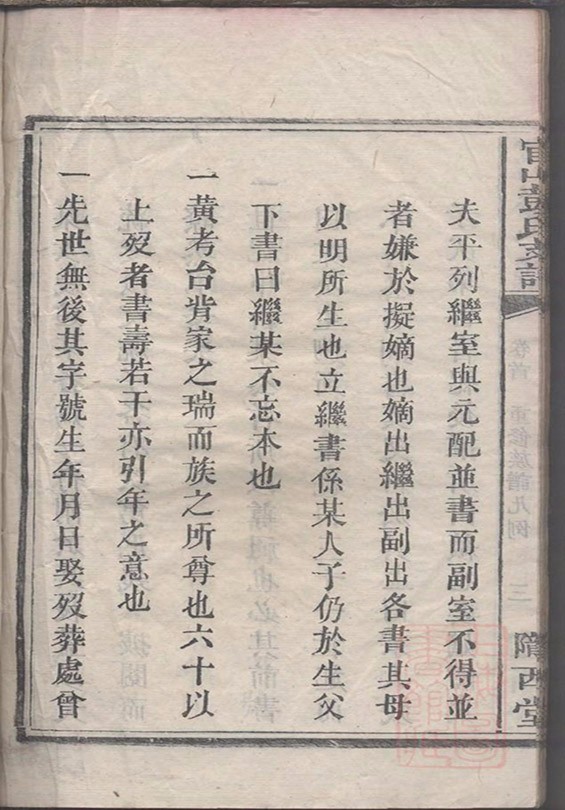 官山彭氏支譜
卷首
重修族譜凡例
三
隴西堂
夫平列繼室與元配並書而副室不得並
者嫌於擬嫡也嫡出繼出副出各書其母
以明所生也立繼書係某人子仍於生父
下書曰繼某不忘本也
一黃考台背家之瑞而族之所尊也六十以
上歿者書壽若干亦引年之意也
一先世無後其字號生年月日娶歿葬處曾